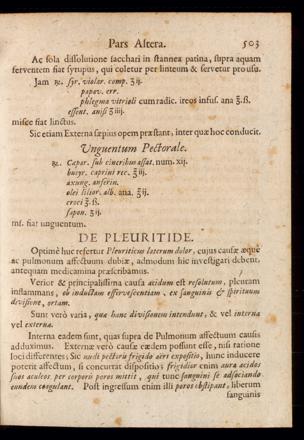 Pars Altera. 503
Ac sola dissolutione sacchari in stannea patina, supra aquam
ferventem fiat syrupus, qui coletur per linteum & servetur pro usu.
Jam ℞. syr. violar. comp. ℥ij.
papav. err.
phlegma vitrioli cum radic. ireos infus. ana ℥.ß.
essent. anisi ʒiiij.
misce fiat linctus.
Sic etiam Externa sæpius opem præstant, inter quæ hoc conducit.
Unguentum Pectorale.
℞. Capar. sub cineribus assat. num. xij.
butyr. caprini rec. ℥iij.
axung. anserin.
olei lilior. alb. ana. ℥ij.
croci ʒ.ß.
sapon. ʒij.
ms. fiat unguentum.
DE PLEURITIDE.
Optimè huc refertur Pleuriticus laterum dolor, cujus causæ æque
ac pulmonum affectuum dubiæ, admodum hic investigari debent,
antequam medicamina præscribamus.
Verior & principalissima causa acidum est resolutum, pleuram
inflammans, ob inductam effervescentiam, ex sanguinis & spirituum
devisione, ortam.
Sunt verò varia, quæ hanc divisionem intendunt, & vel interna
vel externa.
Interna eadem sunt, quas supra de Pulmonum affectuum causis
adduximus. Externæ verò causæ eædem possunt esse, nisi ratione
loci differentes; Sic nudi pectoris frigido aëri expositio, hunc inducere
poterit affectum, si concurrat dispositio; frigidior enim aura acidos
suos aculeos per corporis poros mittit, qui tunc sanguini se adsociando
eundem coagulant. Post ingressum enim illi poros obstipant, liberum
sanguinis